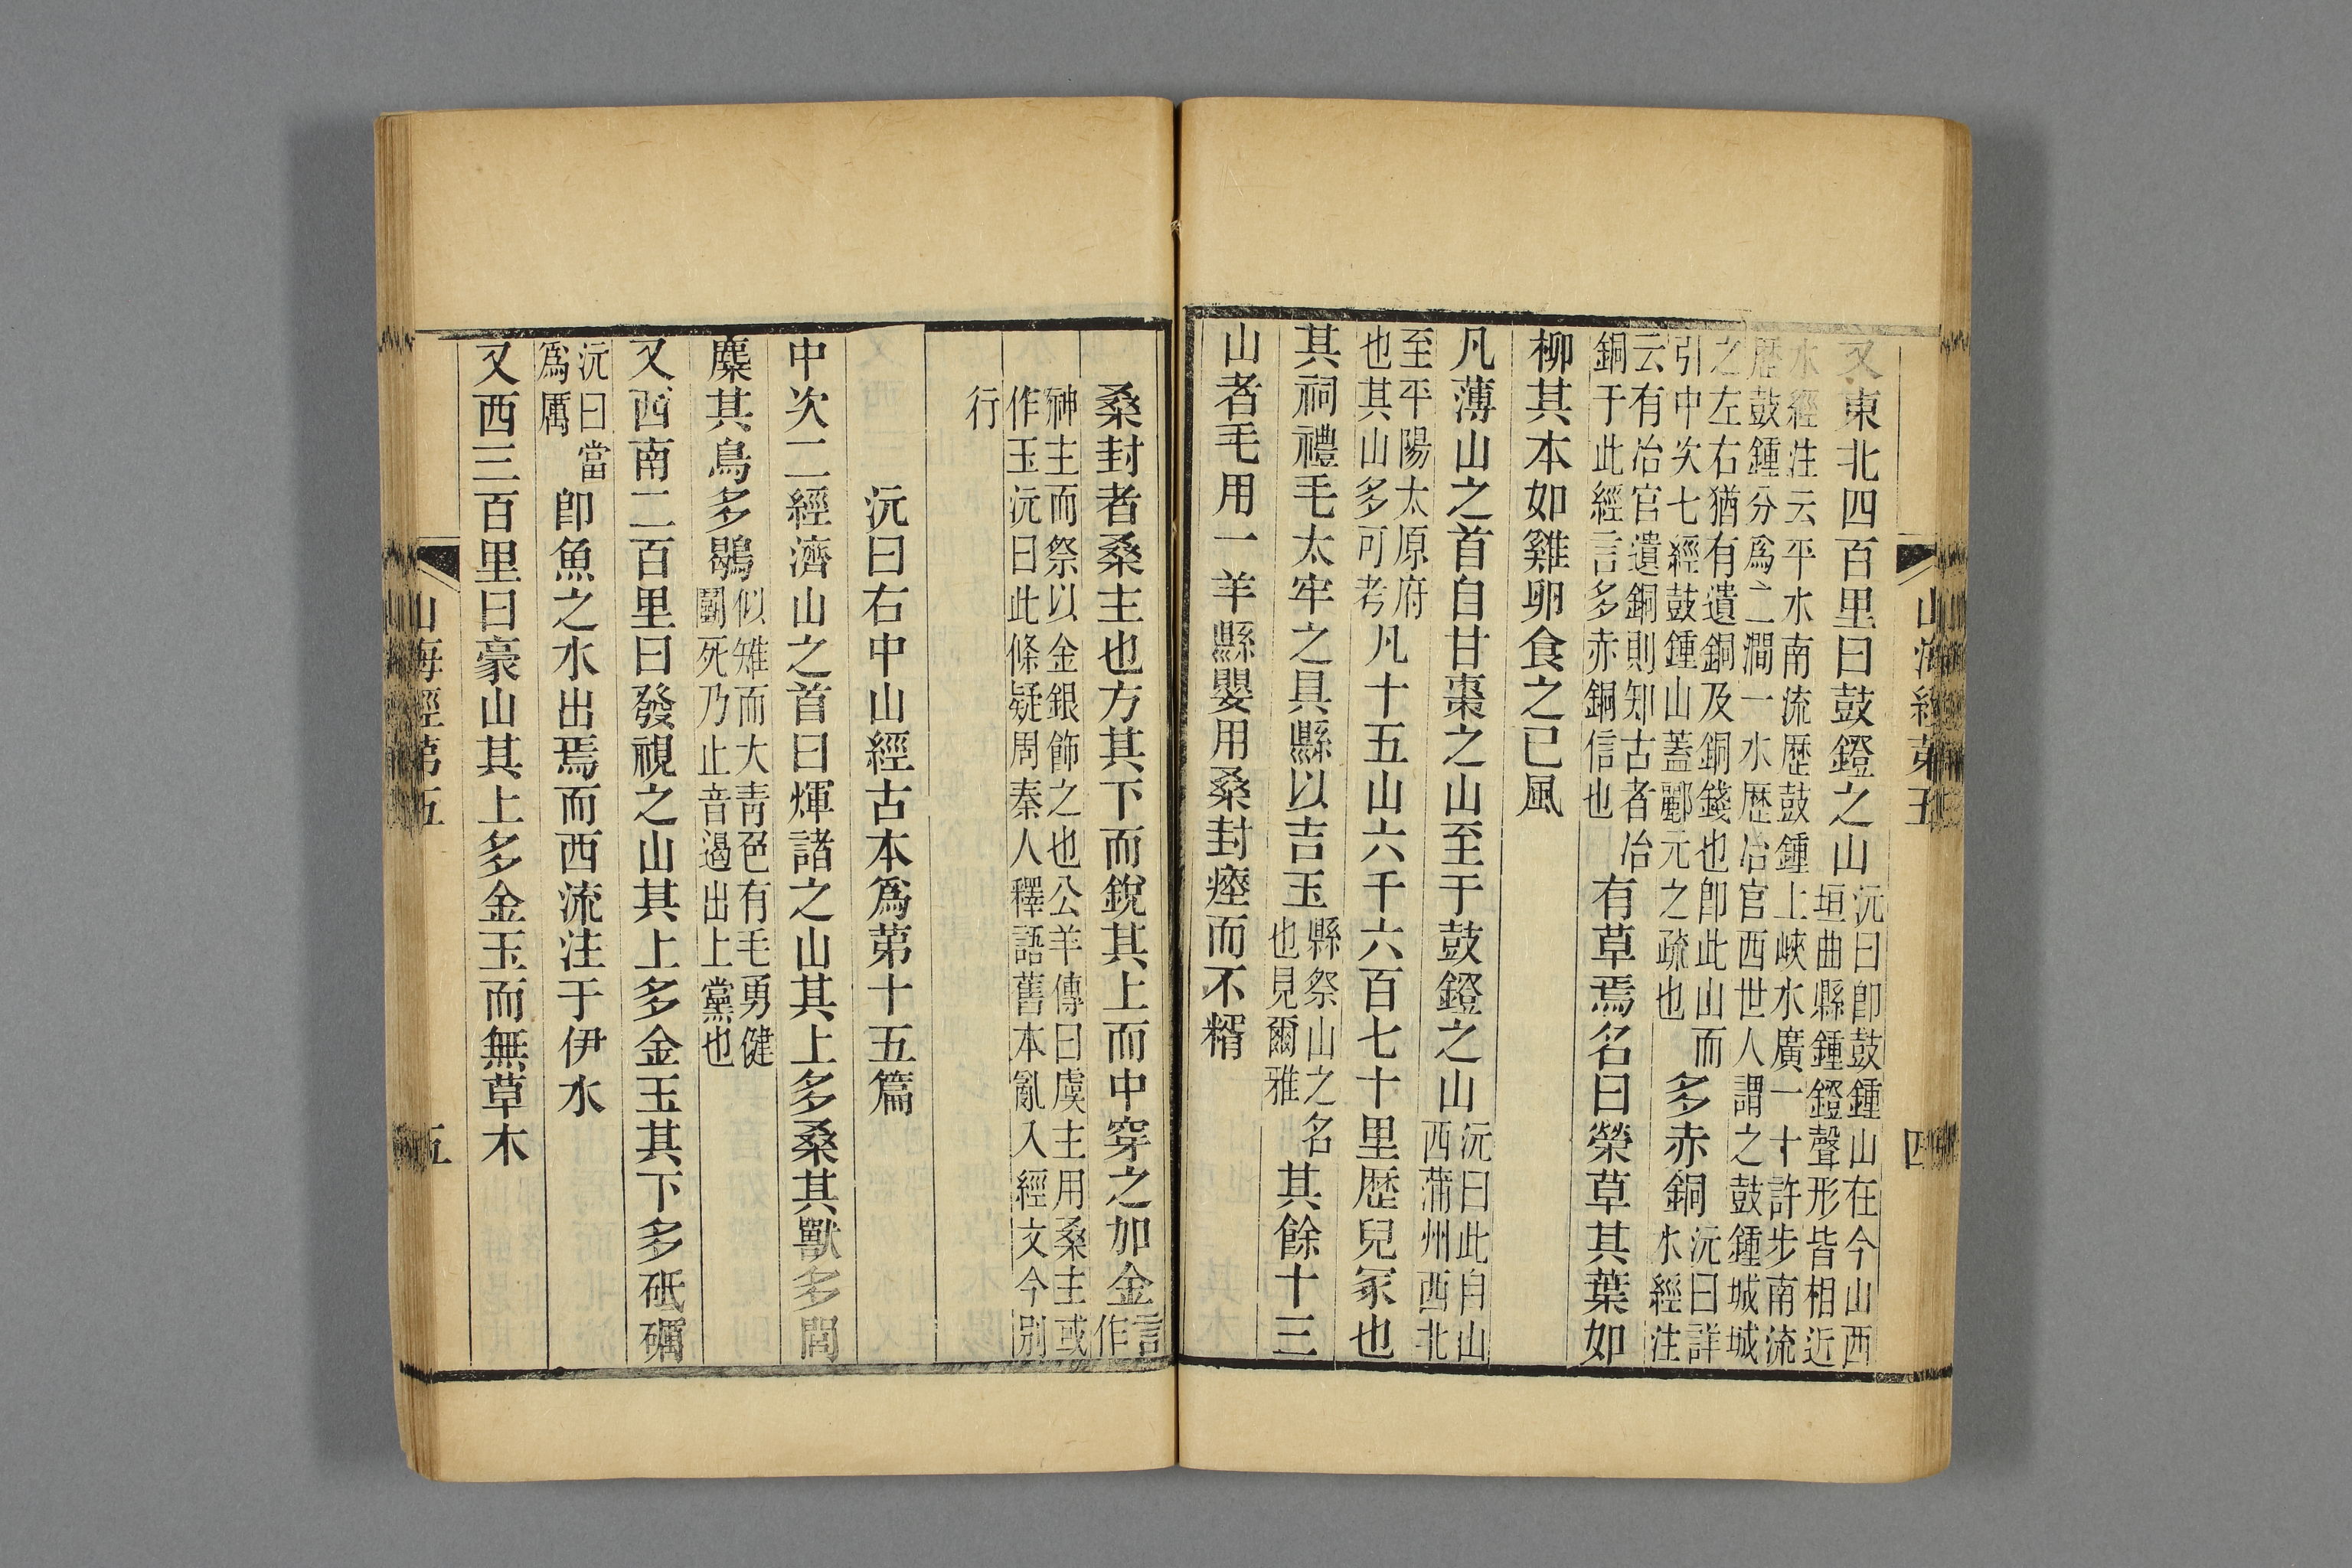 山海經第五 四
又東北四百里曰鼓鐙之山
沅曰卽鼓鍾山在今山西
垣曲縣鍾鐙聲形皆相近
水經注云平水南流歷鼓鍾上峽水廣一十許步南流
歷鼓鍾分爲二澗一水歷冶官西世人謂之鼓鍾城城
之左右猶有遺銅及銅錢也卽此山而
引中次七經鼓鍾山蓋酈元之疏也
多赤銅
沅曰詳
水經注
云有冶官遺銅則知古者冶
銅于此經言多赤銅信也
有草焉名曰榮草其葉如
柳其本如雞卵食之已風
凡薄山之首自甘棗之山至于鼓鐙之山
沅曰此自山
西蒲州西北
至平陽太原府
也其山多可考
凡十五山六千六百七十里歷兒冢也
其祠禮毛太牢之具縣以吉玉
縣祭山之名
也見爾雅
其餘十三
山者毛用一羊縣嬰用桑封瘞而不糈
桑封者桑主也方其下而銳其上而中穿之加金
言
作
神主而祭以金銀飾之也公羊傳曰虞主用桑主或
作玉沅曰此條疑周秦人釋語舊本亂入經文今別
行
沅曰右中山經古本爲第十五篇
中次二經濟山之首曰煇諸之山其上多桑其獸多閭
麋其鳥多鶡
似雉而大青色有毛勇健
鬭死乃止音遏出上黨也
又西南二百里曰發視之山其上多金玉其下多砥礪
沅曰當
爲厲
卽魚之水出焉而西流注于伊水
又西三百里曰豪山其上多金玉而無草木
山海經第五 五